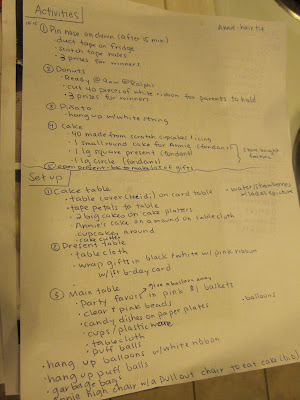 Activities
Annie - hair tie
① Pin nose on clown (after 15 min)
· duct tape on fridge
· scotch tape noses
· 3 prizes for winners
② Donuts
· Ready @ 9am @ Ralphs
· cut 40 pieces of white ribbon for parents to hold
· 3 prizes for winners
③ Pinata
· hang up w/ white string
④ Cake
· 40 made from scratch cupcakes / icing
· 1 small round cake for Annie (fondant)
· 1 lg square present (fondant)
· 1 lg circle (fondant)
store bought
⑤ open present - be to make list of gifts
Set up
① Cake table
· table cover (Heidi) on card table
· water/strawberries
w/ label & picture
· tape petals to table
· 2 big cakes on cake platters
· Annie's cake on a mound on tablecloth
· cupcakes around
· cake cutter
② Present table
· table cloth
· wrap gifts in black & white w/ pink ribbon
w/ 1st b-day card
③ Main table
give a balloon away
· Party favors in pink baskets
· clear & pink beads
· balloons
· candy dishes on paper plates
· cups / plasticware
· tablecloth
· puff balls
· hang up balloons w/ white ribbon
· hang up puff balls
· garbage bag
high chair w/ a pull out chair to eat cake (b.b)